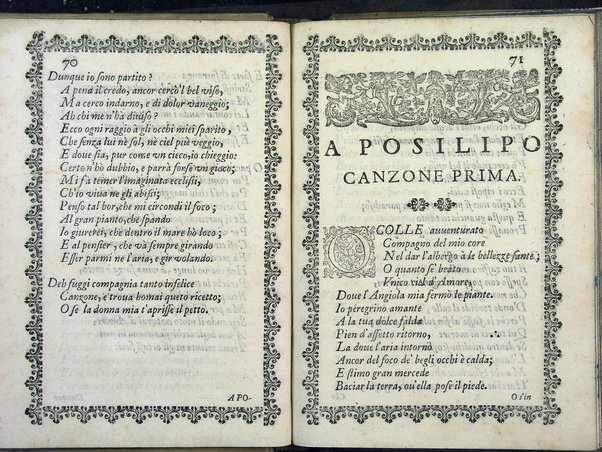 70
Dunque io sono partito?
A pena il credo, ancor cercò'l bel viso,
Ma cerco indarno, e di dolor vaneggio;
Ah chi me n'hà diuiso?
Ecco ogni raggio à gli occhi miei sparito,
Che senza lui nè sol, nè ciel più veggio,
E doue sia, pur come vn cieco, io chieggio:
Certo n'hò dubbio, e parrà forse vn gioco;
Mi fà temer l'imaginata ecclissi,
Ch'io viua ne gli abissi;
Penso tal hor, che mi circondi il foco;
Al gran pianto, che spando
Io giurerei, che dentro il mare hò loco;
E al pensier, che và sempre girando
Esser parmi ne l'aria, e gir volando.
Deh fuggi compagnia tanto infelice
Canzone, e troua homai queto ricetto;
O se la donna mia t'aprisse il petto.
A PO-
71
A POSILIPO
CANZONE PRIMA.
O COLLE auuenturato
Compagno del mio core
Nel dar l'albergo à le bellezze sante,
O quanto se' beato
Vnico ciel d'Amore,
Doue l'Angiola mia fermò le piante.
Io peregrino amante
A la tua dolce falda
Pien d'affetto ritorno,
La doue l'aria intorno
Ancor del foco de' begli occhi è calda;
E stimo gran mercede
Baciar la terra, ou'ella pose il piede.
O s'in